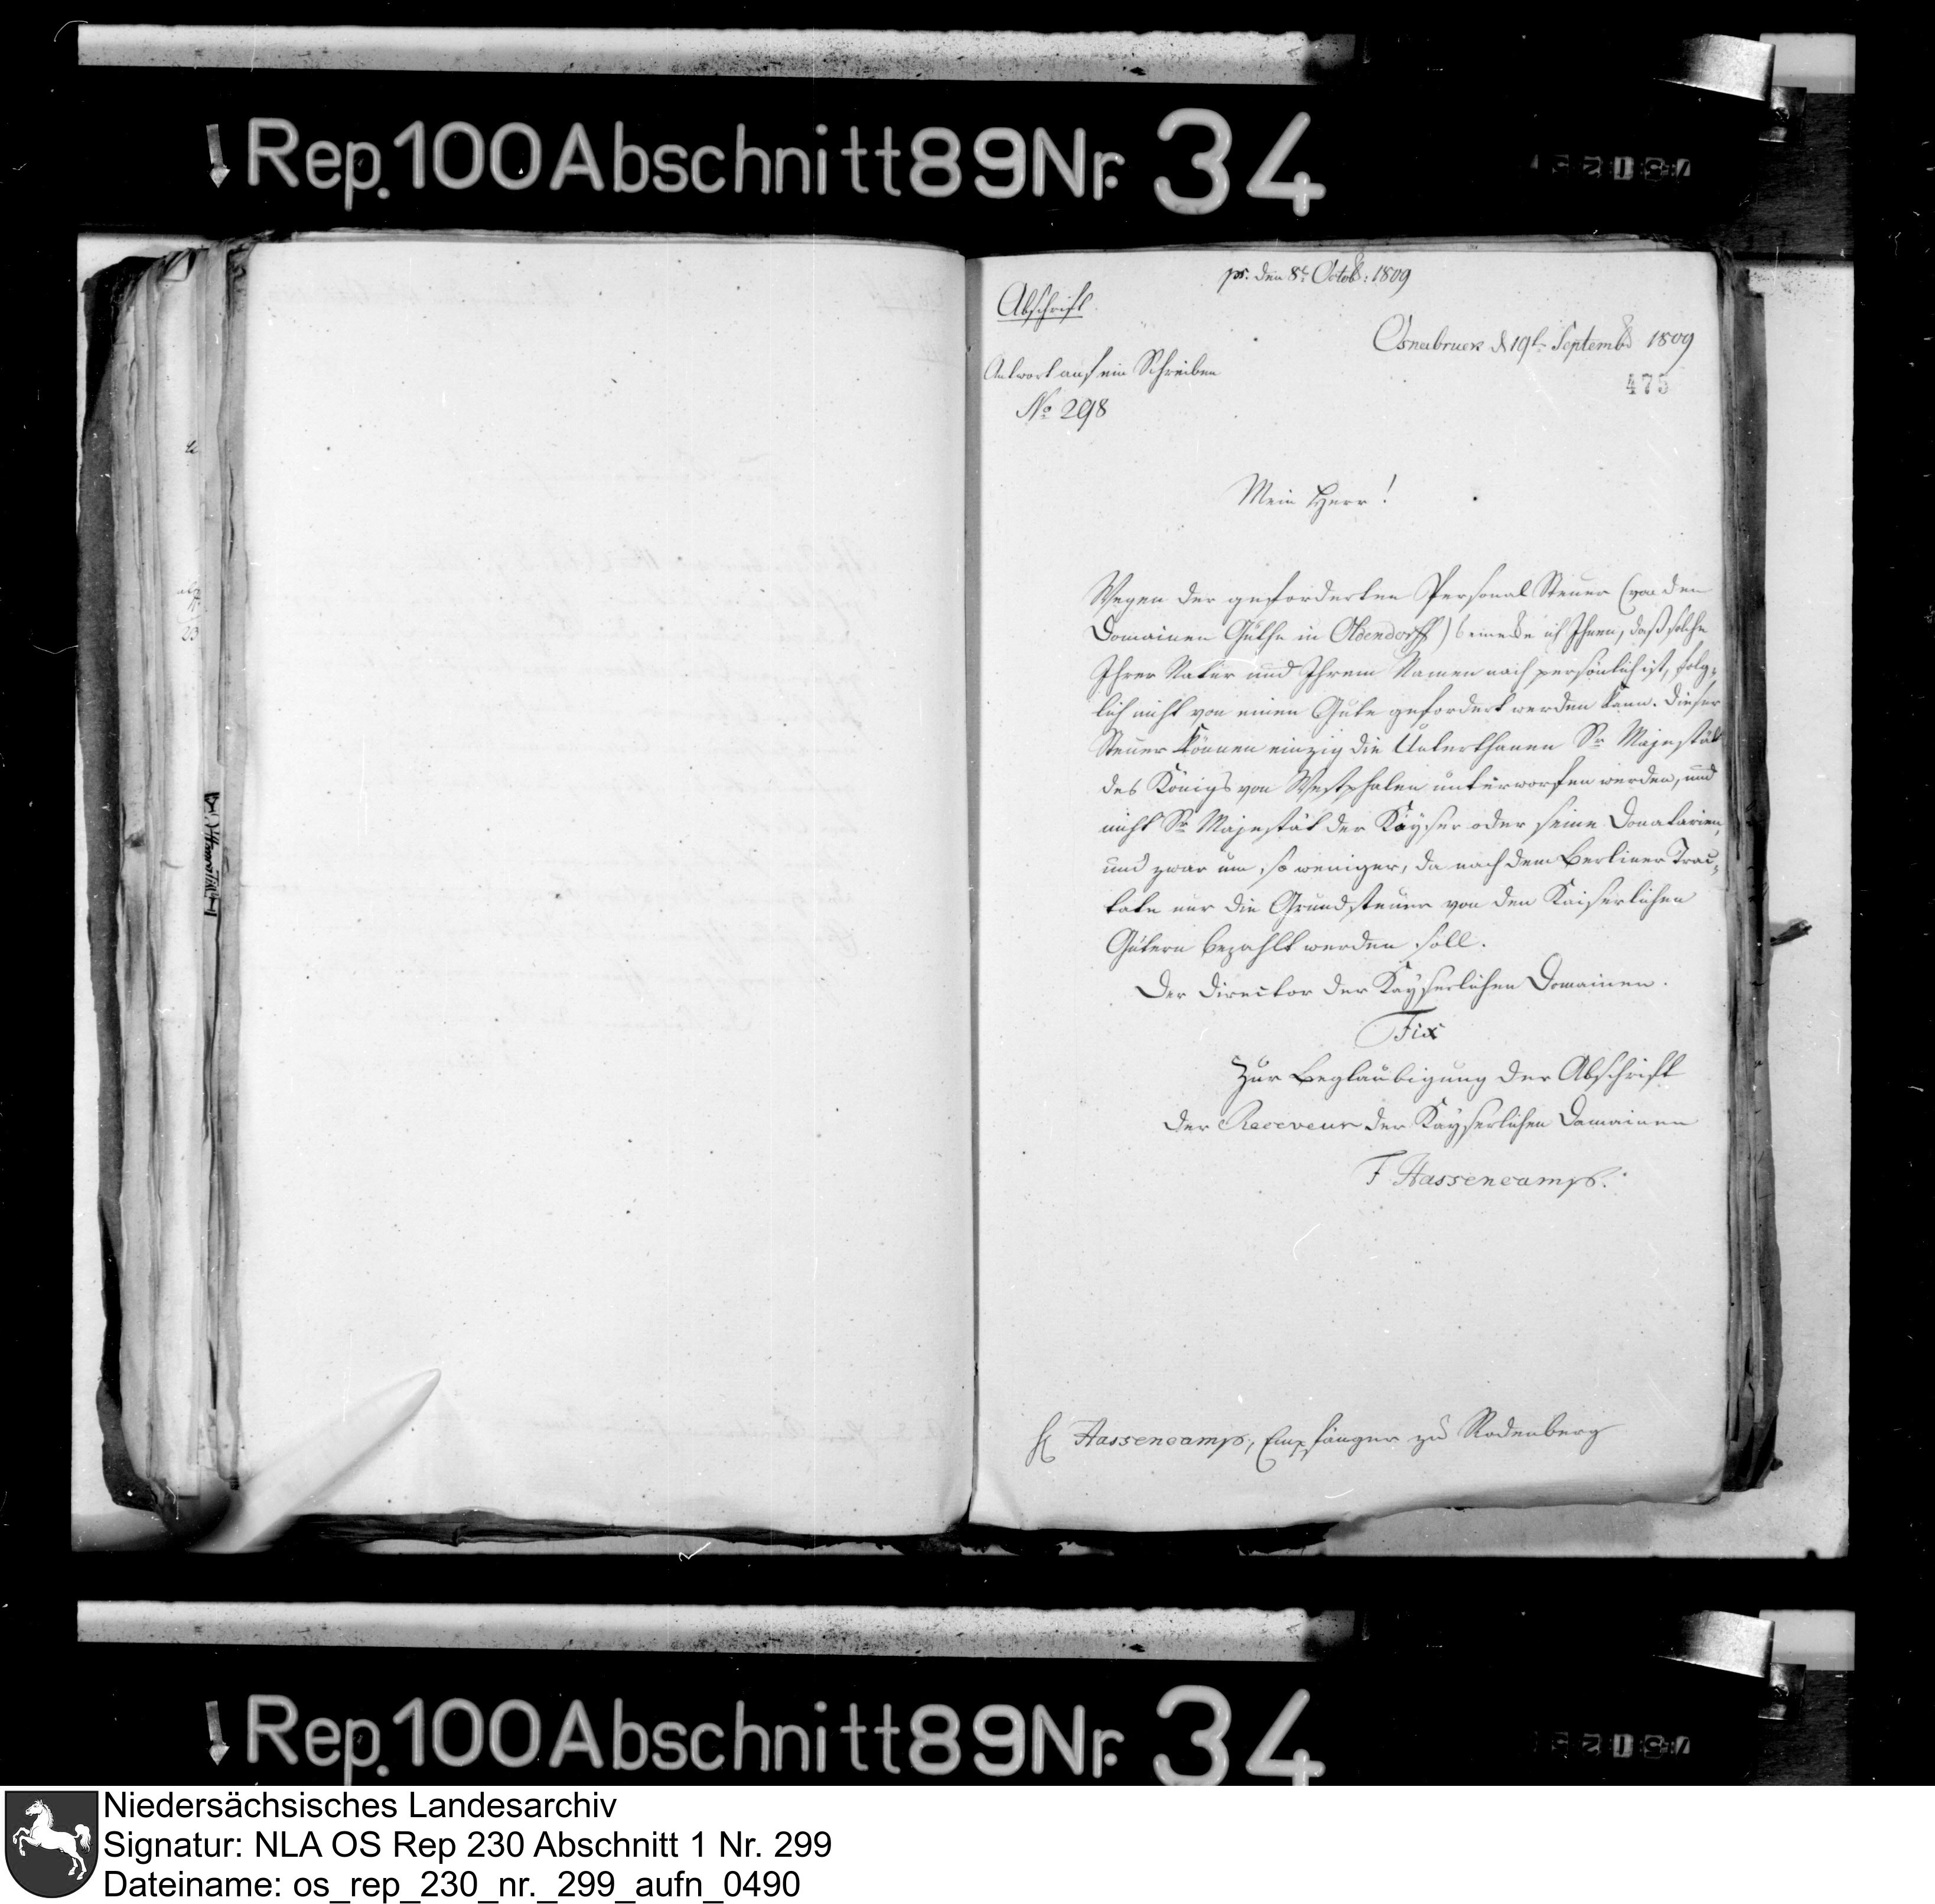 Rep. 100 Abschnitt 89 Nr. 34
pr. den 8t Octob: 1809
Abschrift.
Osnabruck d 19t Septembr 1809
475
Antwort auf ein Schreiben
No 298
Mein Herr!
Wegen der geforderten Personal Steuer (von den
Domainen Guthe in Oldendorff) bemerke ich Ihnen, daß solche
Ihrer Natur und Ihrem Namen nach persönlich ist, folg-
lich nicht von einem Gute gefordert werden kann. Dieser
Steuer können einzig die Unterthanen Sr Majestät
des Königs von Westphalen unterworfen werden, und
nicht Sr Majestät der Kayser oder seine Donatarien,
und zwar um so weniger, da nach dem Berliner Trac-
tate nur die Grundsteuer von den Kaiserlichen
Gütern bezahlt werden soll.
Der Director der Kayserlichen Domainen.
Fix
Zur Beglaubigung der Abschrift
der Receveur der Kayserlichen Domainen
F Hassencamp.
H Hassencamp, Empfänger zu Rodenberg
Rep. 100 Abschnitt 89 Nr. 34
Niedersächsisches Landesarchiv
Signatur: NLA OS Rep 230 Abschnitt 1 Nr. 299
Dateiname: os_rep_230_nr._299_aufn_0490